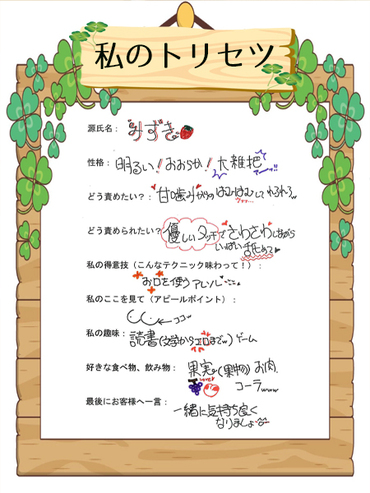 私のトリセツ
源氏名：みずき
性格：明るい！おおらか！大雑把
どう責めたい？：甘噛みからのはむはむして
どう責められたい？優しいタッチでさわさわしながら
いっぱい
私の得意技（こんなテクニック味わって！）：
お口を使うアレソレ
私のここを見て（アピールポイント）：
ココ
私の趣味：読書(文学からエロまでw)ゲーム
好きな食べ物、飲み物：果実(果物)お肉
コーラwww
最後にお客様へ一言：一緒に気持ち良く
なりましょ